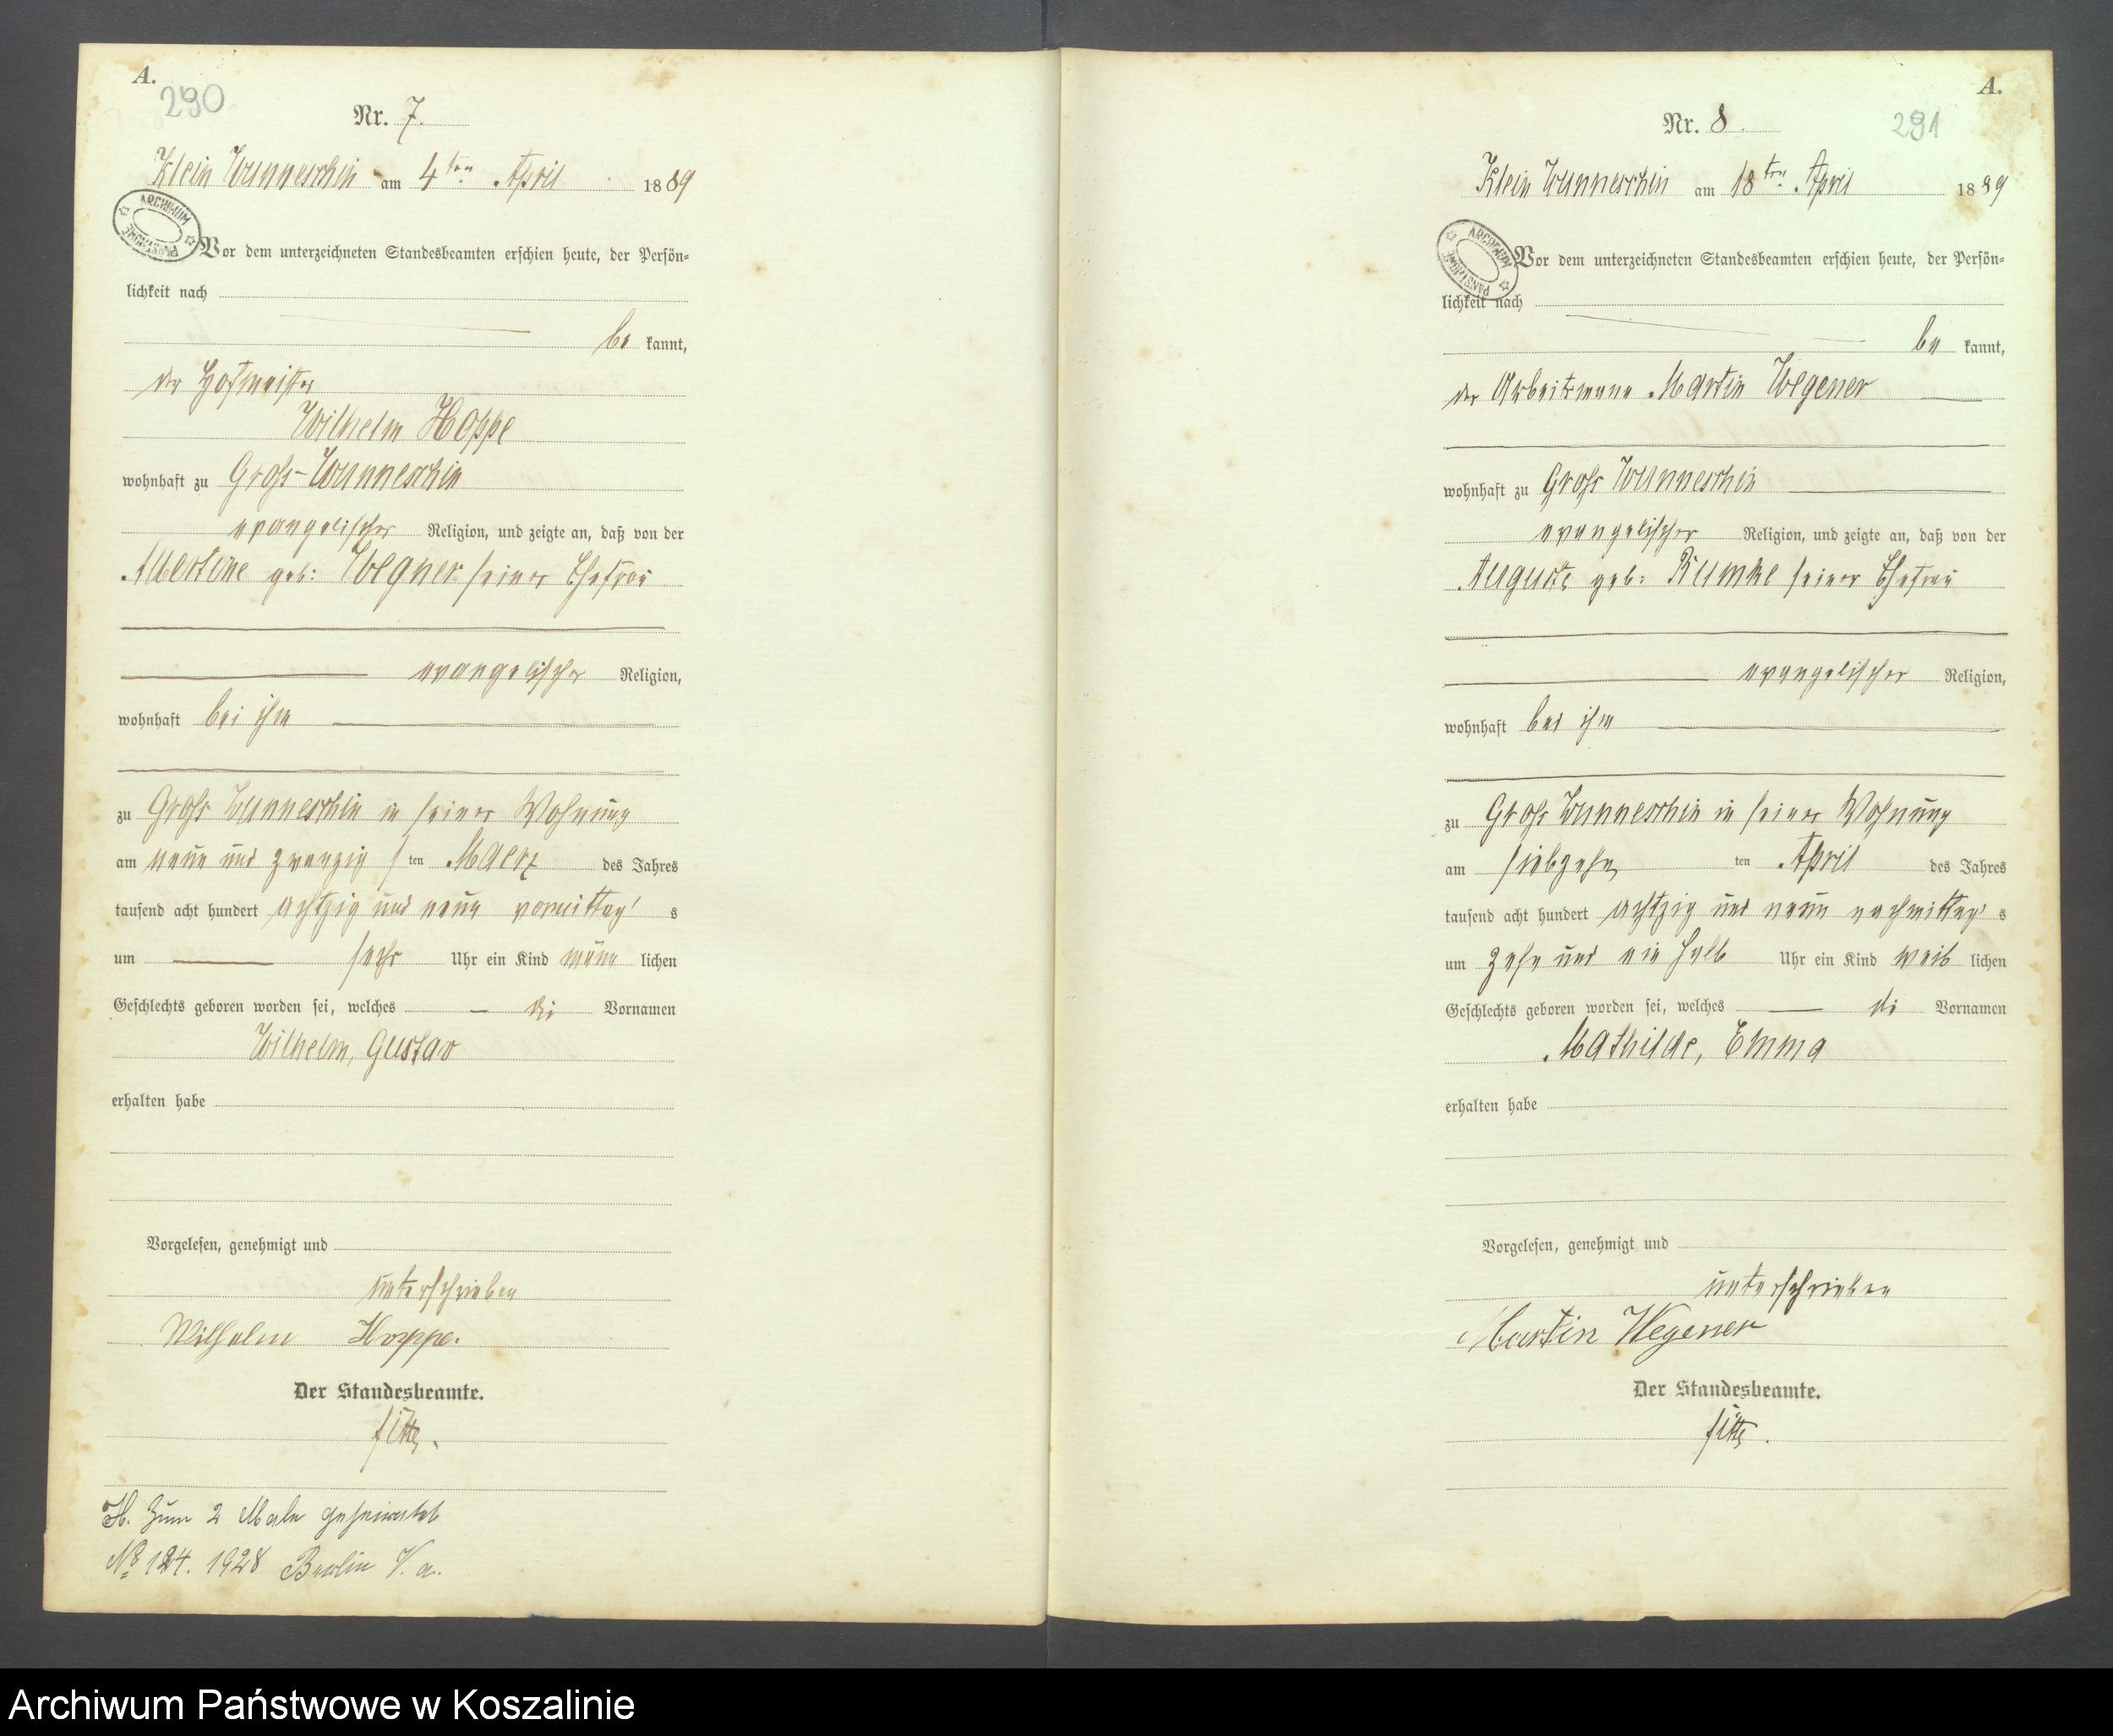 A.
290
Nr. 7.
Klein Wunneschin am 4ten April 1889
ARCHIWUM PAŃSTWOWE
Vor dem unterzeichneten Standesbeamten erschien heute, der Persön-
lichkeit nach
be kannt,
der Hofmeister
Wilhelm Hoppe
wohnhaft zu Groß-Wunneschin
evangelischer Religion, und zeigte an, daß von der
Albertine geb: Wegner seiner Ehefrau
evangelischer Religion,
wohnhaft bei ihm
zu Groß Wunneschin in seiner Wohnung
am neun und zwanzigs ten Maerz des Jahres
tausend acht hundert achtzig und neun vormittag s
um sechs Uhr ein Kind männ lichen
Geschlechts geboren worden sei, welches die Vornamen
Wilhelm, Gustav
erhalten habe
Vorgelesen, genehmigt und
unterschrieben
Wilhelm Hoppe.
Der Standesbeamte.
H. Zum 2 Male geheiratet
No 124. 1928 Berlin V. a.
A.
Nr. 8.
291
Klein Wunneschin am 18ten April 1889
ARCHIWUM PAŃSTWOWE
Vor dem unterzeichneten Standesbeamten erschien heute, der Persön-
lichkeit nach
be kannt,
der Arbeitsmann Martin Wegener
wohnhaft zu Groß Wunneschin
evangelischer Religion, und zeigte an, daß von der
Auguste geb: Rumke seiner Ehefrau
evangelischer Religion,
wohnhaft bei ihm
zu Groß Wunneschin in seiner Wohnung
am siebzehn ten April des Jahres
tausend acht hundert achtzig und neun nachmittag s
um zehn und ein halb Uhr ein Kind weib lichen
Geschlechts geboren worden sei, welches die Vornamen
Mathilde, Emma
erhalten habe
Vorgelesen, genehmigt und
unterschrieben
Martin Wegener
Der Standesbeamte.
Archiwum Państwowe w Koszalinie